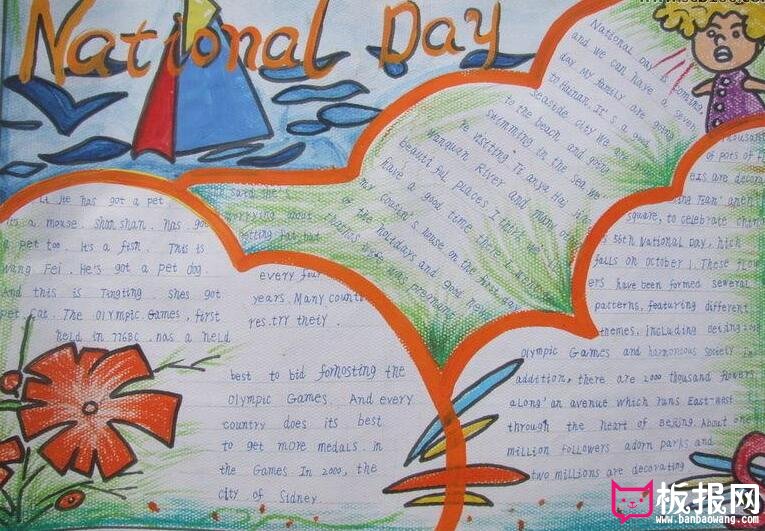 National Day
Li He has got a pet
it's a mouse. Shan shan. has got
a pet too. It's a fish. This is
wang Fei. He's got a pet dog.
And this is Tingting. shes got
pet cat. The Olympic. Games, first
held in 776BC. has a held
every four
years. Many count
res.try theiy.
best to bid fornosting the
Olympic Games. And every
country does its best
to get more medals. in
the Games In 2000, the
city of Sidney
said she's
worrying about
getting fat, but
National Day is coming,
and we can have a seven
day. My family are going
to Hainan. It's a good
seaside city We are
to the beach and going
swimming in the sea. We
visiting Tianya Hai
Wanquan River and many of
beautiful places I think we
have a good time there
my coutin's house on the first day
of the hoildays and good news
wife was pregnant
thousand
of pots of fl
ers are decora
Square, to celebrate china
s 56th National Day, hich
falls on october 1. These flow
ers have been formed several
patterns, featuring different
themes, including beijing
Olympic Games and harmonious society in
addition, there are 2000 thousand flowers
along'an avenue which runs East-West
through the heart of Beijing. About one
million followers adorn parks and
two millions are decorating
板报网
www.banbaowang.com